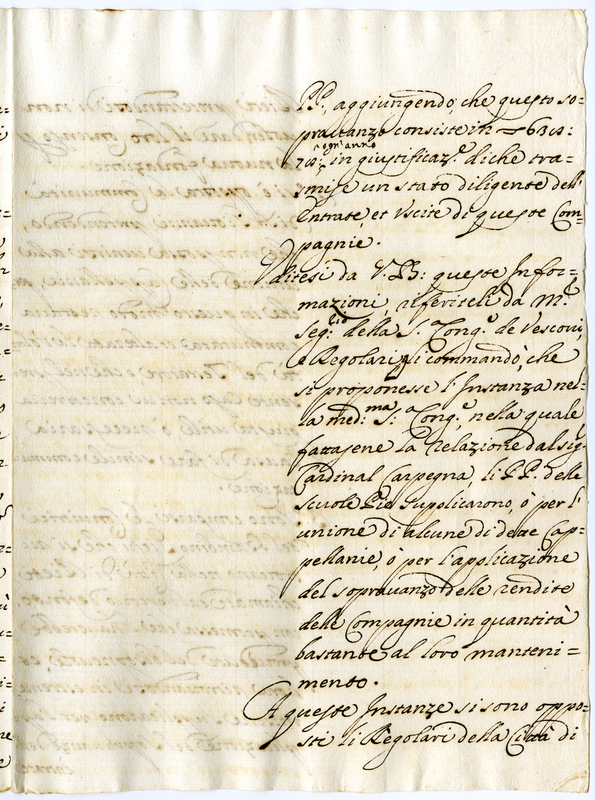 PP., aggiungendo, che questo so-
pravanzo consiste in 630:
ogni anno
70: in giustificaz.e di che tra-
smise un stato diligente dell'
Entrate, et Uscite di queste Com-
pagnie.
Uditesi da V. queste Infor-
mazioni, riferiteli da M.r
Seg.rio della S. Cong.e de Vescovi,
e Regolari, li commandò, che
si proponesse l'Instanza nel-
la med.ma S.a Cong.e, nella quale
fattasene la relazione dal Sig.
Cardinal Carpegna, li PP. delle
Scuole Pie supplicarono, ò per l'
unione di alcune di dette Cap-
pellanie, ò per l'applicazione
del sopravanzo delle rendite
delle Compagnie in quantità
bastante al loro manteni-
mento.
A queste Instanze si sono oppo-
sti li Regolari della Città di